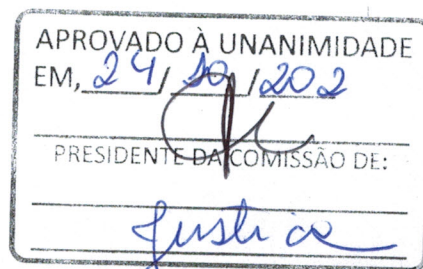 APROVADO À UNANIMIDADE
EM, 24/10/202
PRESIDENTE DA COMISSÃO DE:
Justiça